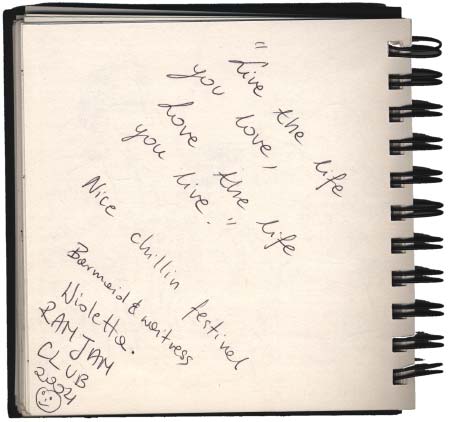 "Live the life
you love,
Love the life
you live."
Nice chillin festival
Barmaid & waitress
Violetta.
RAMJAM
CLUB
2004